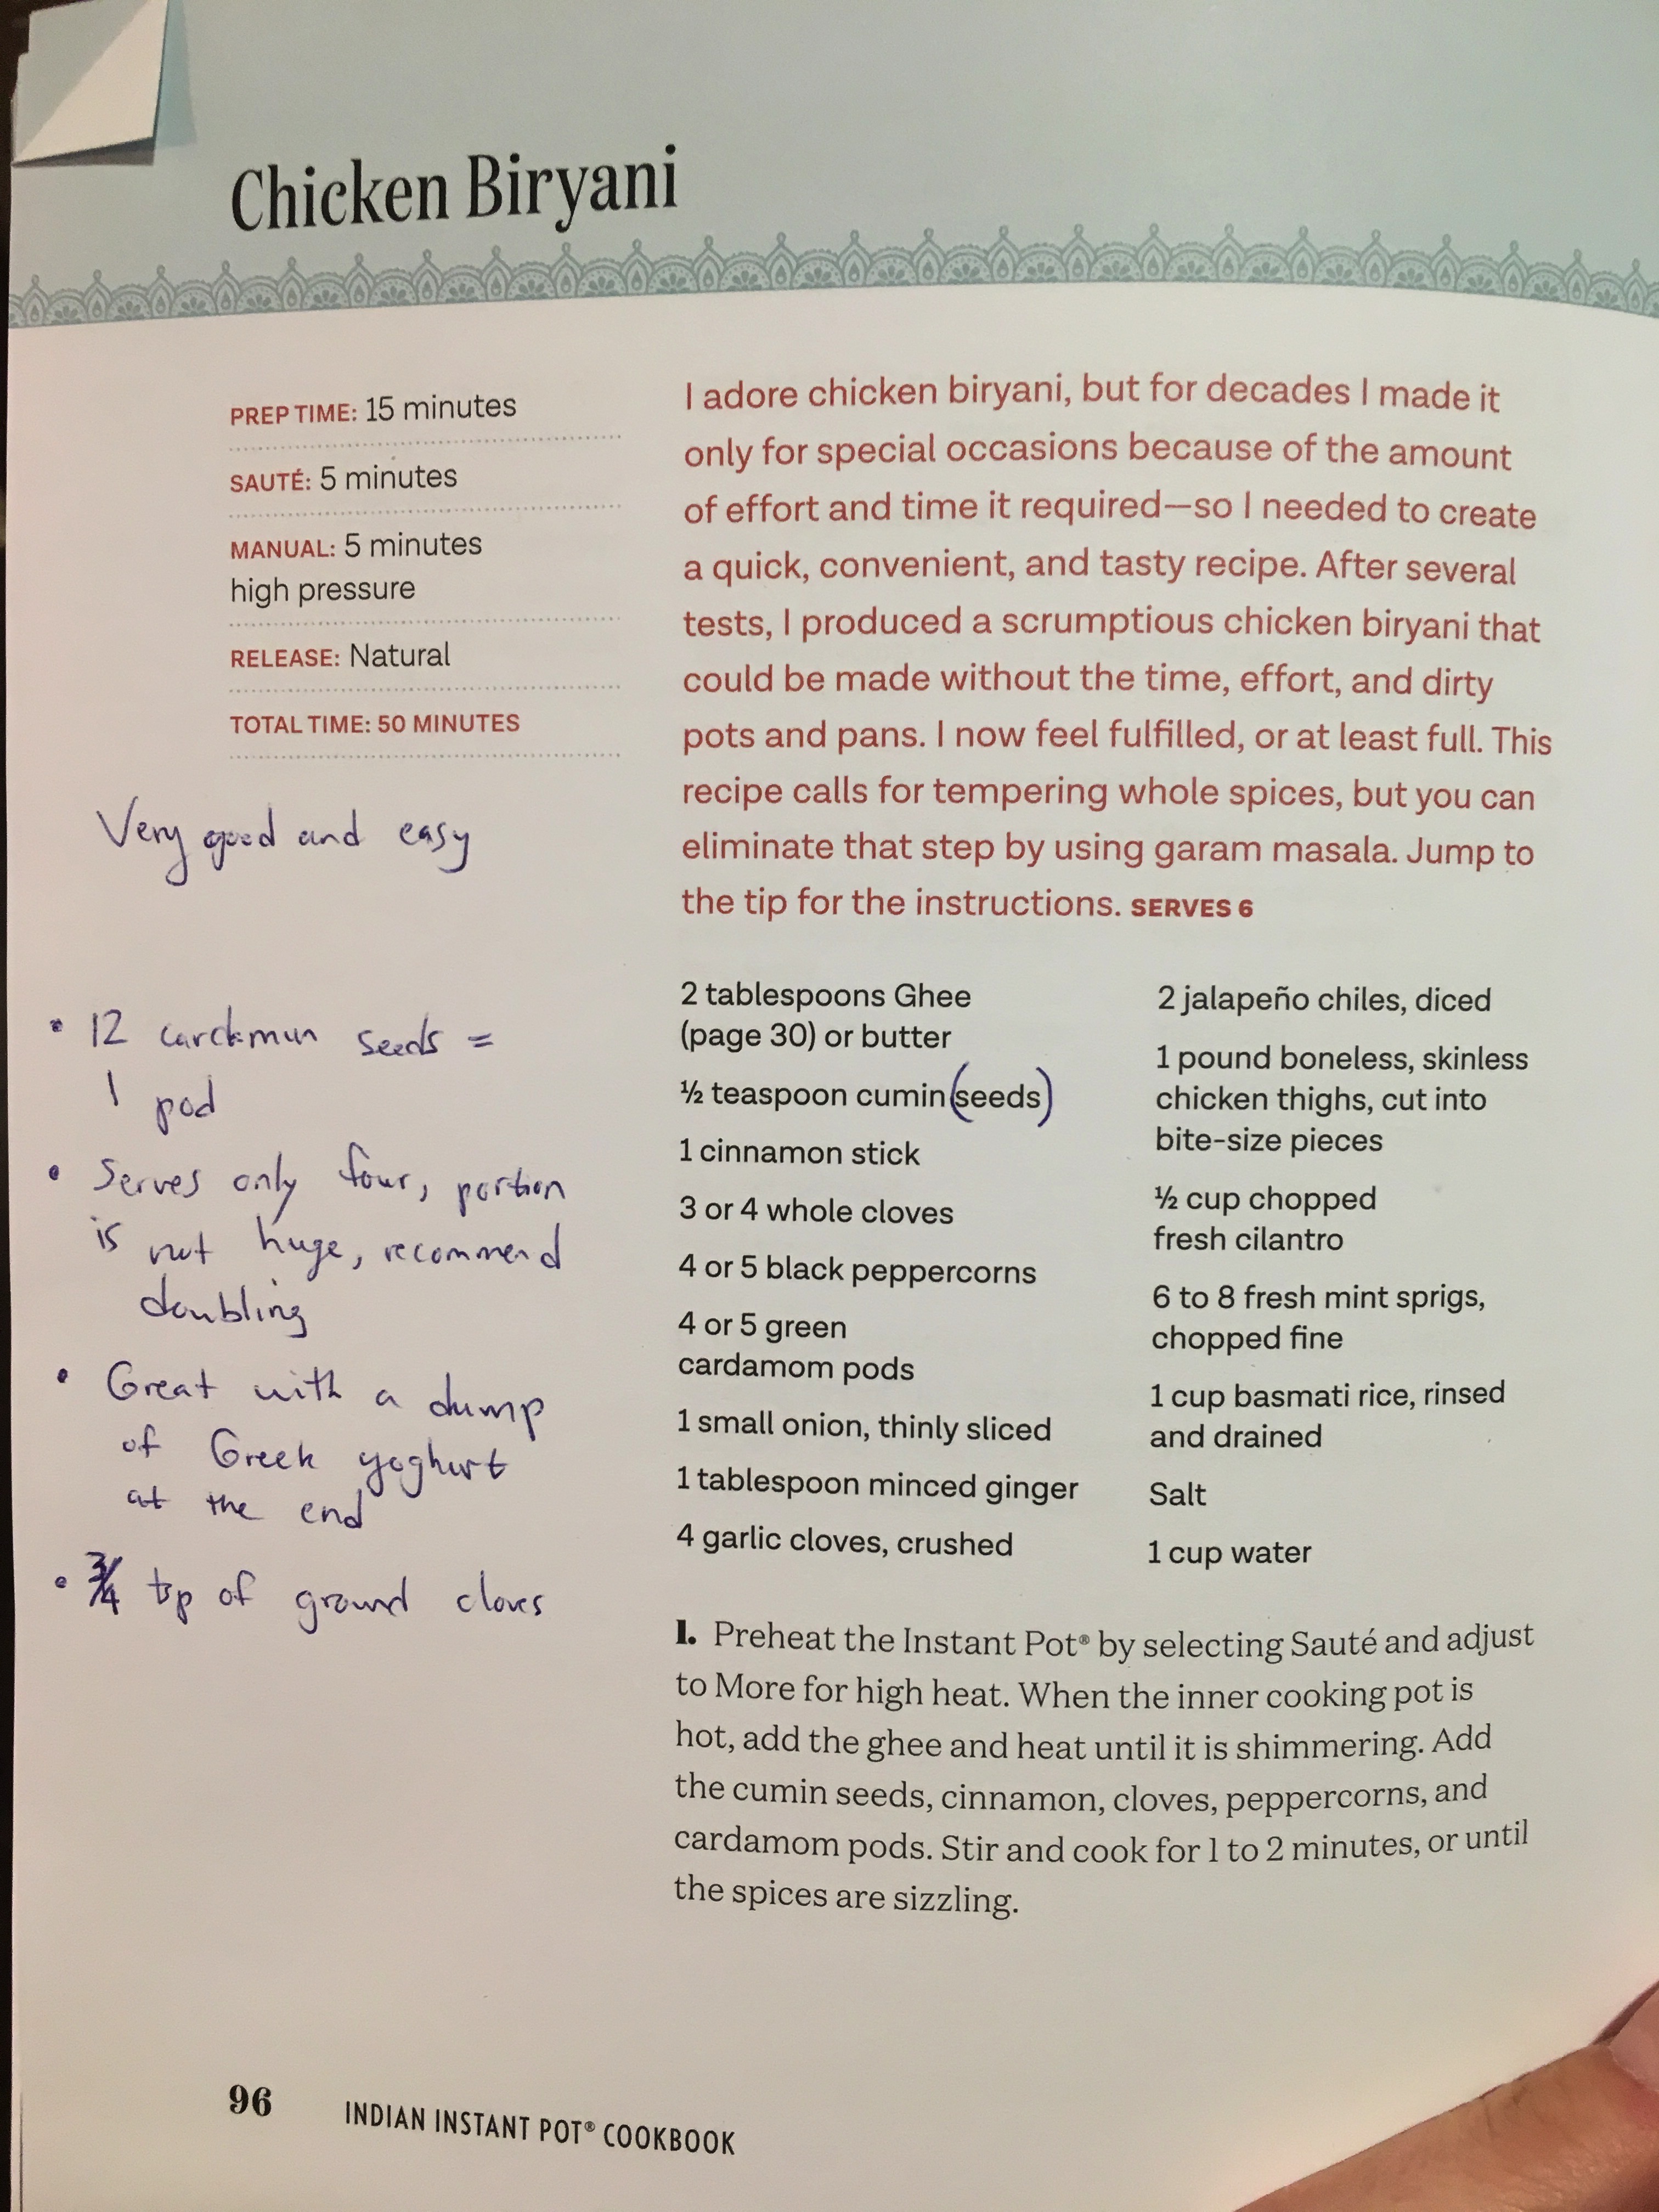 Chicken Biryani
PREP TIME: 15 minutes
SAUTÉ: 5 minutes
MANUAL: 5 minutes
high pressure
RELEASE: Natural
TOTAL TIME: 50 MINUTES
Very good and easy
• 12 cardamun seeds =
1 pod
• Serves only four, portion
is not huge, recommend
doubling
• Great with a dump
of Greek yoghurt
at the end
• 3/4 tsp of ground cloves
I adore chicken biryani, but for decades I made it
only for special occasions because of the amount
of effort and time it required—so I needed to create
a quick, convenient, and tasty recipe. After several
tests, I produced a scrumptious chicken biryani that
could be made without the time, effort, and dirty
pots and pans. I now feel fulfilled, or at least full. This
recipe calls for tempering whole spices, but you can
eliminate that step by using garam masala. Jump to
the tip for the instructions. SERVES 6
2 tablespoons Ghee
(page 30) or butter
½ teaspoon cumin (seeds)
1 cinnamon stick
3 or 4 whole cloves
4 or 5 black peppercorns
4 or 5 green
cardamom pods
1 small onion, thinly sliced
1 tablespoon minced ginger
4 garlic cloves, crushed
2 jalapeño chiles, diced
1 pound boneless, skinless
chicken thighs, cut into
bite-size pieces
½ cup chopped
fresh cilantro
6 to 8 fresh mint sprigs,
chopped fine
1 cup basmati rice, rinsed
and drained
Salt
1 cup water
1. Preheat the Instant Pot® by selecting Sauté and adjust
to More for high heat. When the inner cooking pot is
hot, add the ghee and heat until it is shimmering. Add
the cumin seeds, cinnamon, cloves, peppercorns, and
cardamom pods. Stir and cook for 1 to 2 minutes, or until
the spices are sizzling.
96 INDIAN INSTANT POT® COOKBOOK